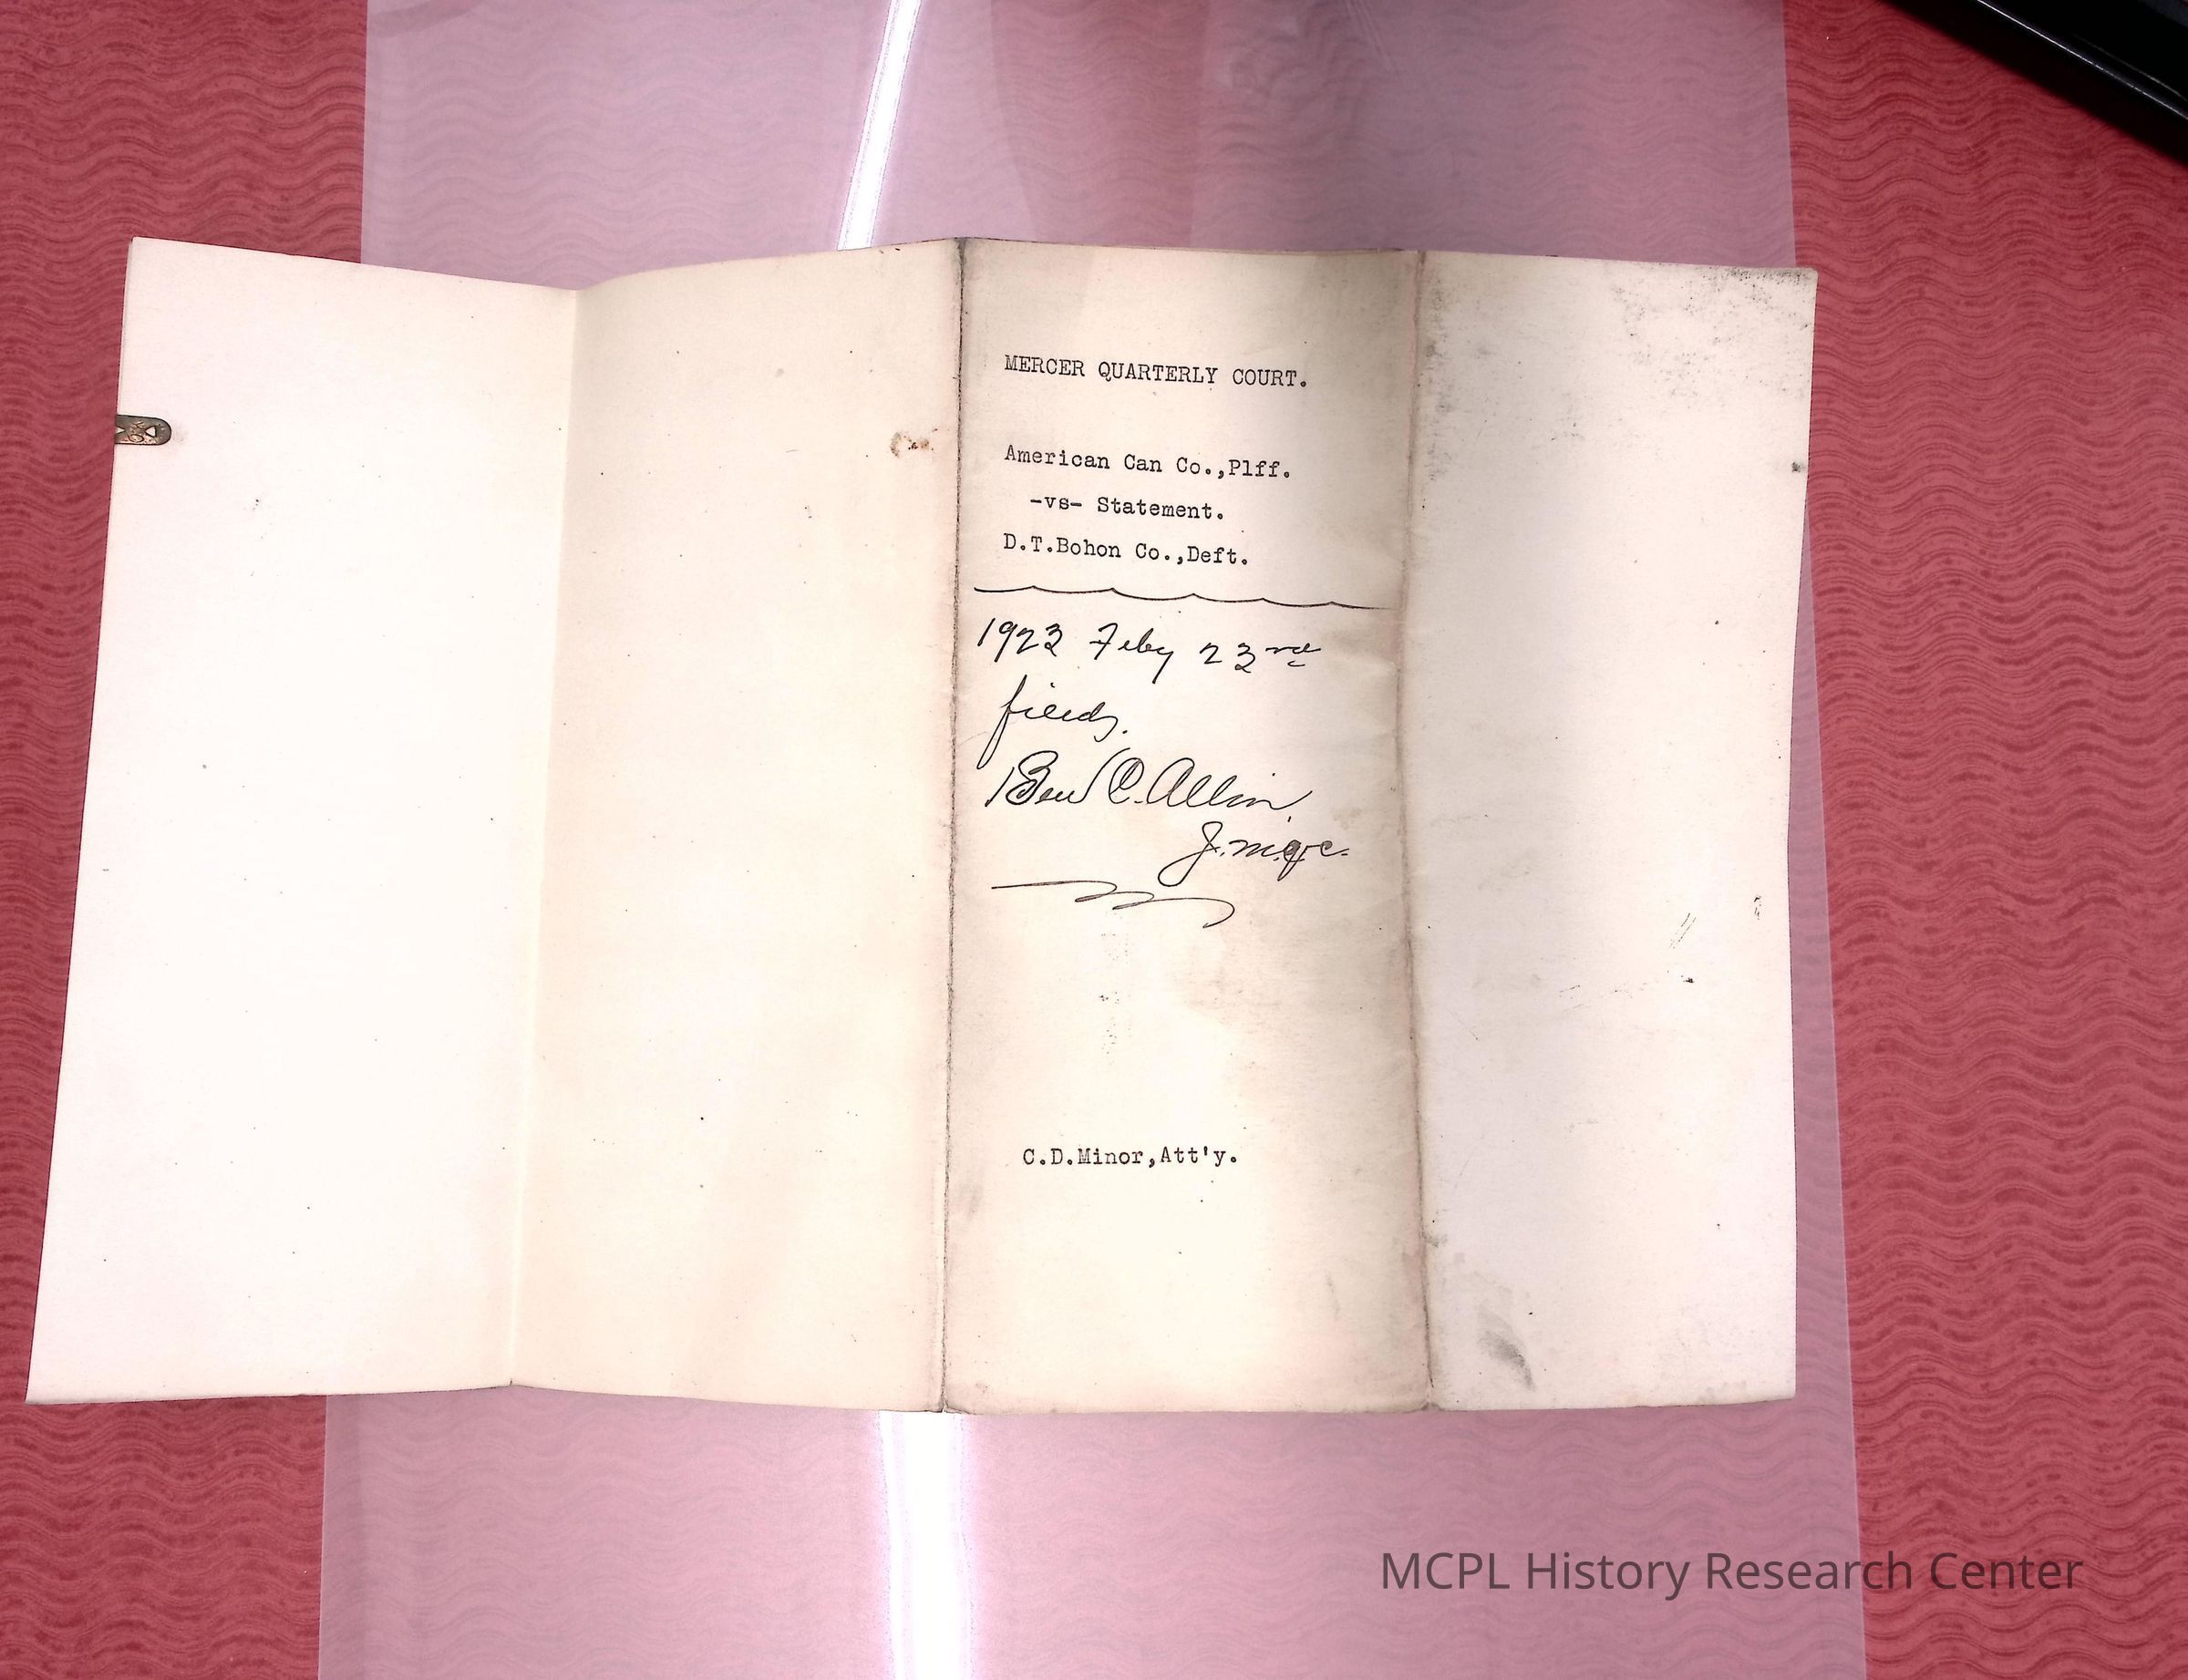 MERCER QUARTERLY COURT.
American Can Co.,Plff.
-vs- Statement.
D.T.Bohon Co.,Deft.
1923 Feby 23rd
filed,
Ben C. Allin,
J.M.Q.C.
C.D.Minor,Att'y.
MCPL History Research Center